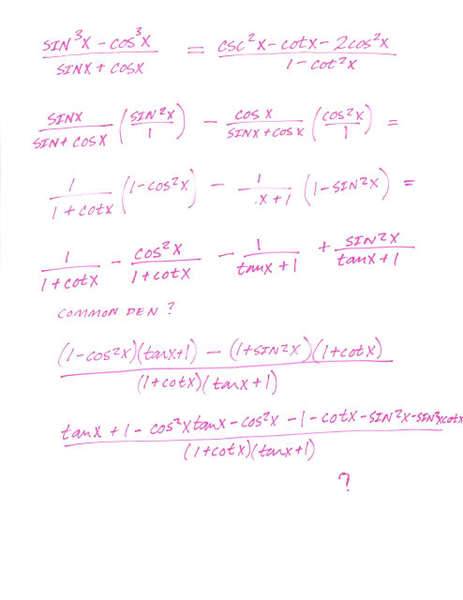 (SIN³X - COS³X)/(SINX + COSX) = (CSC²X - COTX - 2COS²X)/(1 - COT²X)
SINX/(SIN+COSX) (SIN²X/1) - COSX/(SINX+COSX) (COS²X/1) =
1/(1+COTX) (1-COS²X) - 1/(.X+1) (1-SIN²X) =
1/(1+COTX) - COS²X/(1+COTX) - 1/(tanX+1) + SIN²X/(tanX+1)
COMMON DEN ?
((1-COS²X)(tanX+1) - (1+SIN²X)(1+COTX))/((1+COTX)(tanX+1))
(tanX + 1 - COS²XtanX - COS²X - 1 - COTX - SIN²X - SIN²XCOTX)/((1+COTX)(tanX+1))
?